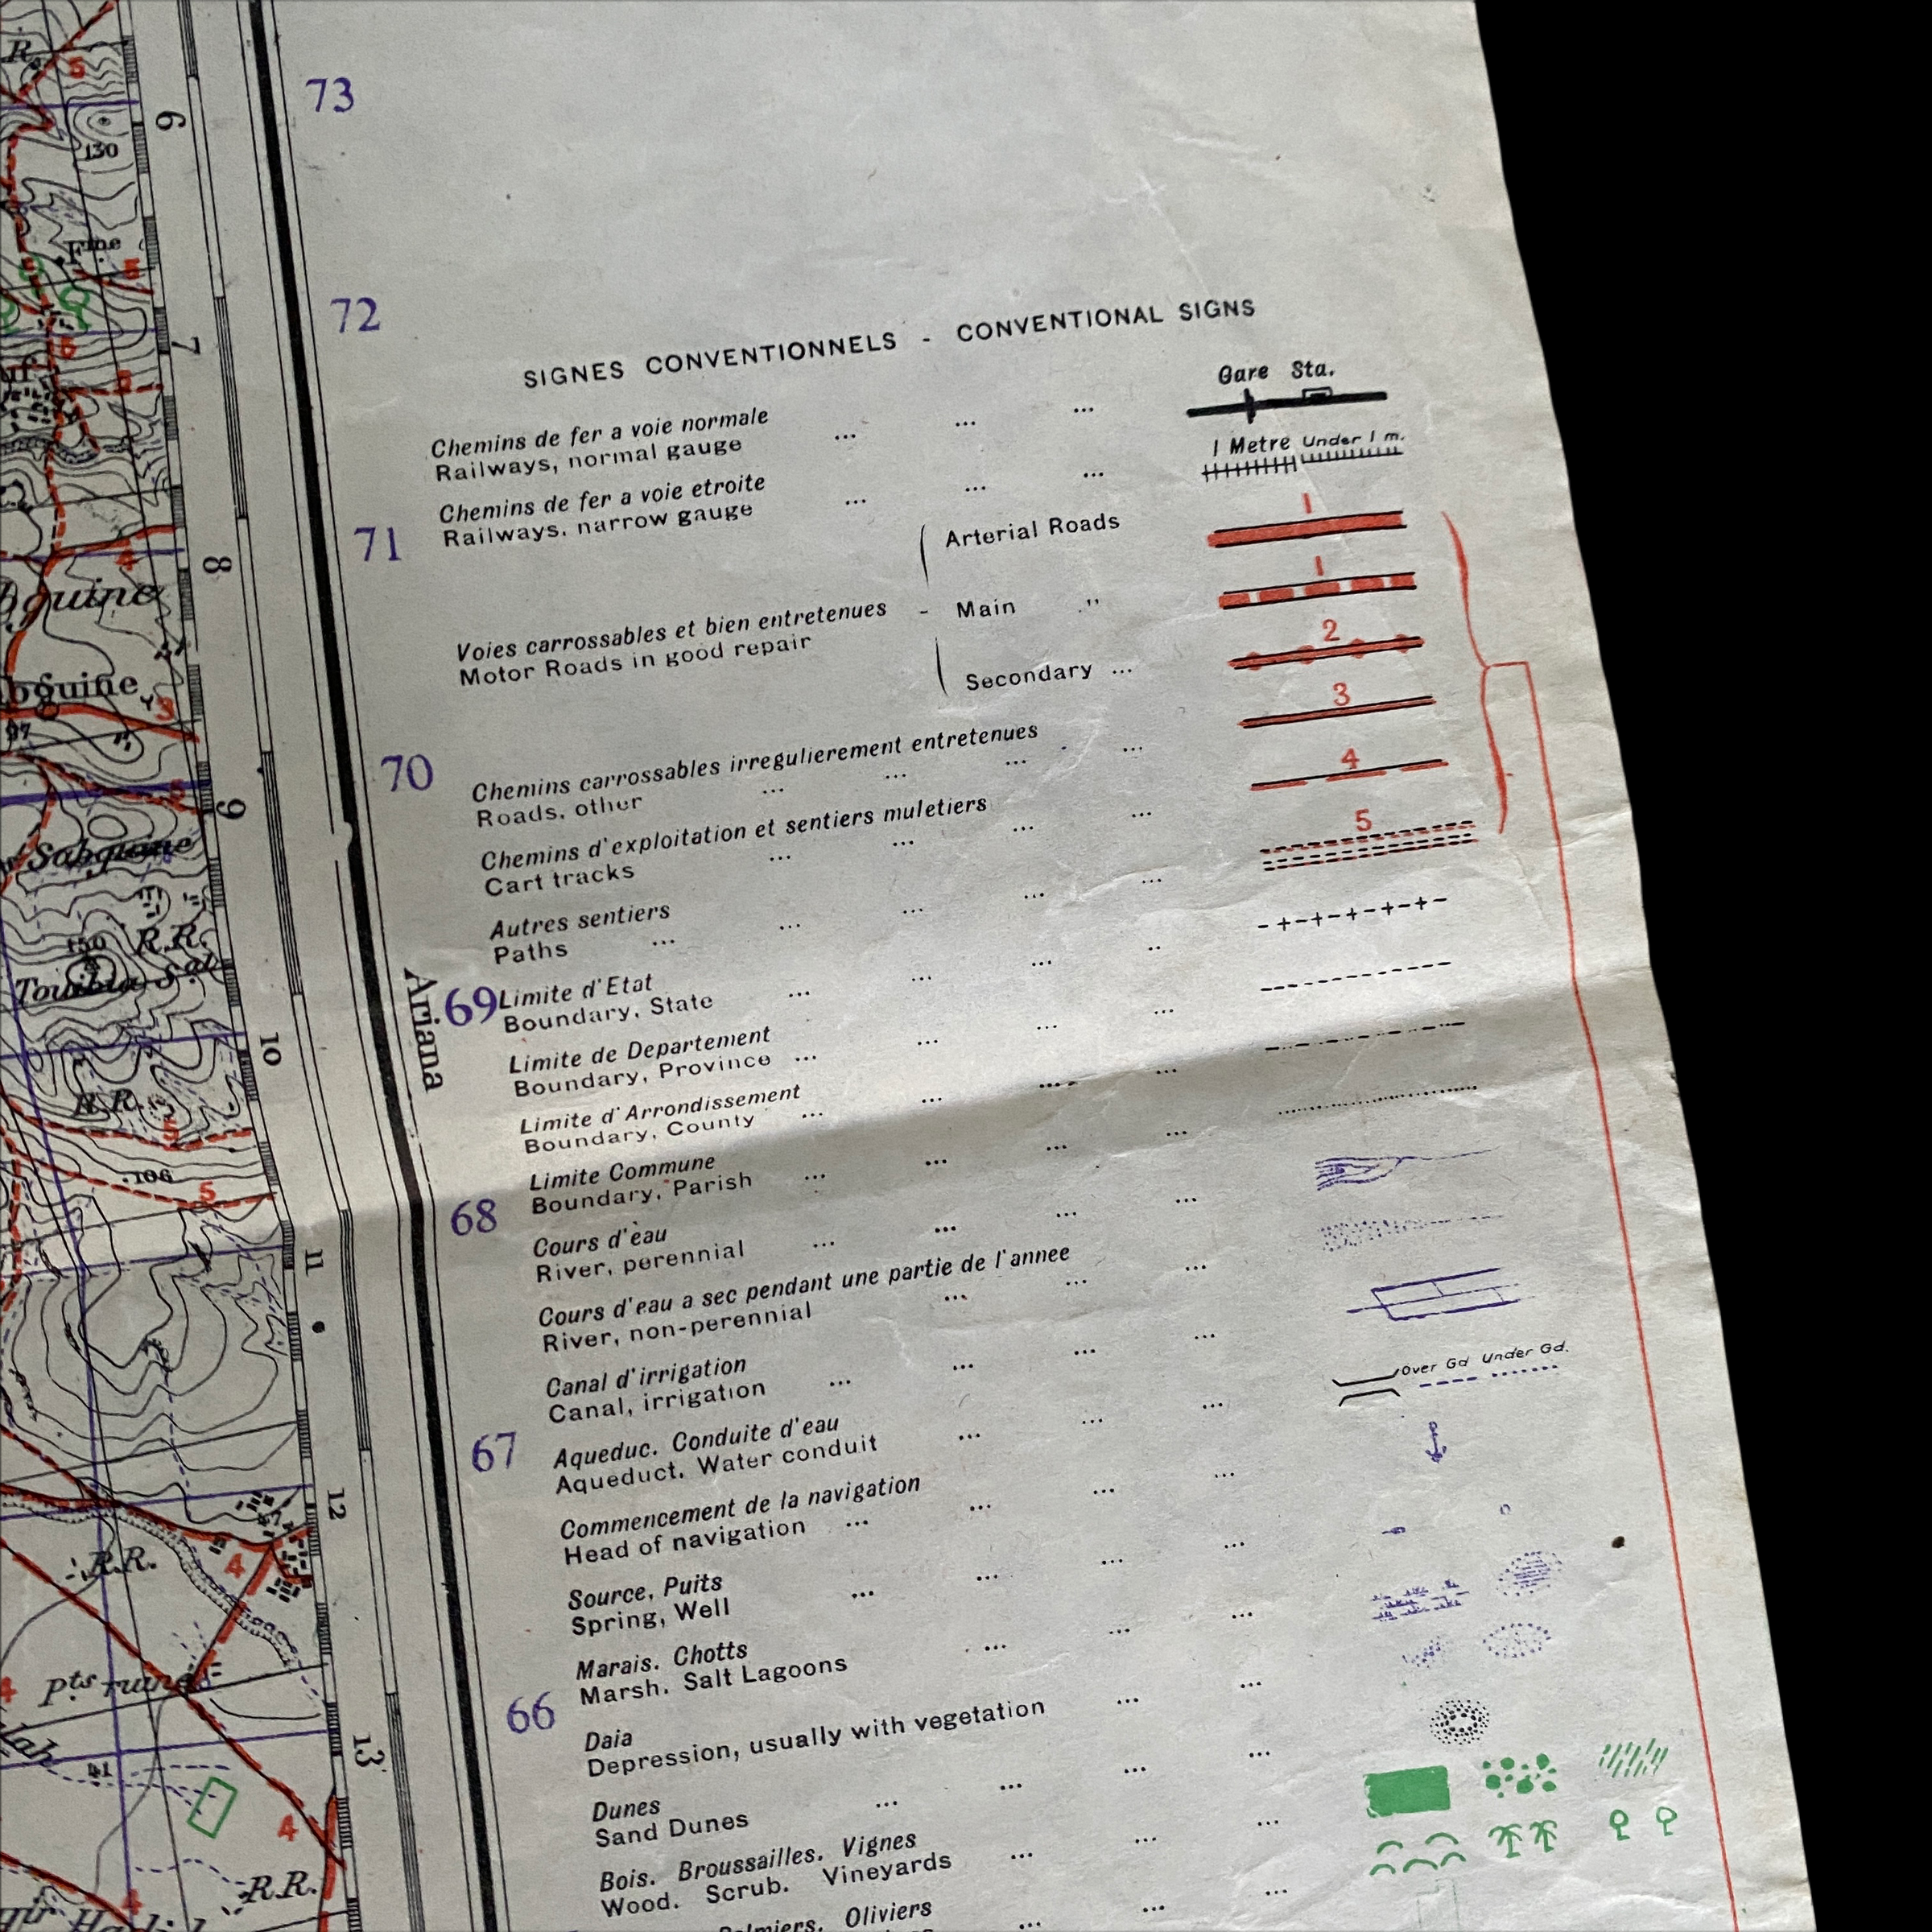 R.
5
6
130
Fme
5
7
5
8
4
bguine
3
97
5
9
Sabguine
150
R.R.
Touibia Sal
10
R.R.
5
106
5
11
12
R.R.
4
Pts ruines
4
13
41
4
R.R.
4
73
72
71
70
69
68
67
66
Ariana
SIGNES CONVENTIONNELS - CONVENTIONAL SIGNS
Gare Sta.
Chemins de fer a voie normale
Railways, normal gauge ... ... ...
1 Metre Under 1 m.
Chemins de fer a voie etroite
Railways, narrow gauge ... ... ...
Arterial Roads 1
Voies carrossables et bien entretenues - Main " 1
Motor Roads in good repair
Secondary ... 2
Chemins carrossables irregulierement entretenues
Roads, other ... ... ... ... 3
Chemins d'exploitation et sentiers muletiers
Cart tracks ... ... ... ... 4
Autres sentiers
Paths ... ... ... ... ... 5
Limite d'Etat
Boundary, State ... ... ... ..
Limite de Departement
Boundary, Province ... ... ... ...
Limite d'Arrondissement
Boundary, County ... ... ... ...
Limite Commune
Boundary, Parish ... ... ... ...
Cours d'èau
River, perennial ... ... ... ...
Cours d'eau a sec pendant une partie de l'annee
River, non-perennial ... ... ...
Canal d'irrigation
Canal, irrigation ... ... ... ...
Over Gd Under Gd.
Aqueduc. Conduite d'eau
Aqueduct. Water conduit ... ... ...
Commencement de la navigation
Head of navigation ... ... ... ...
Source, Puits
Spring, Well ... ... ... ...
Marais. Chotts
Marsh. Salt Lagoons ... ... ...
Daia
Depression, usually with vegetation ... ...
Dunes
Sand Dunes ... ... ... ...
Bois. Broussailles. Vignes
Wood. Scrub. Vineyards ... ... ...
Palmiers. Oliviers